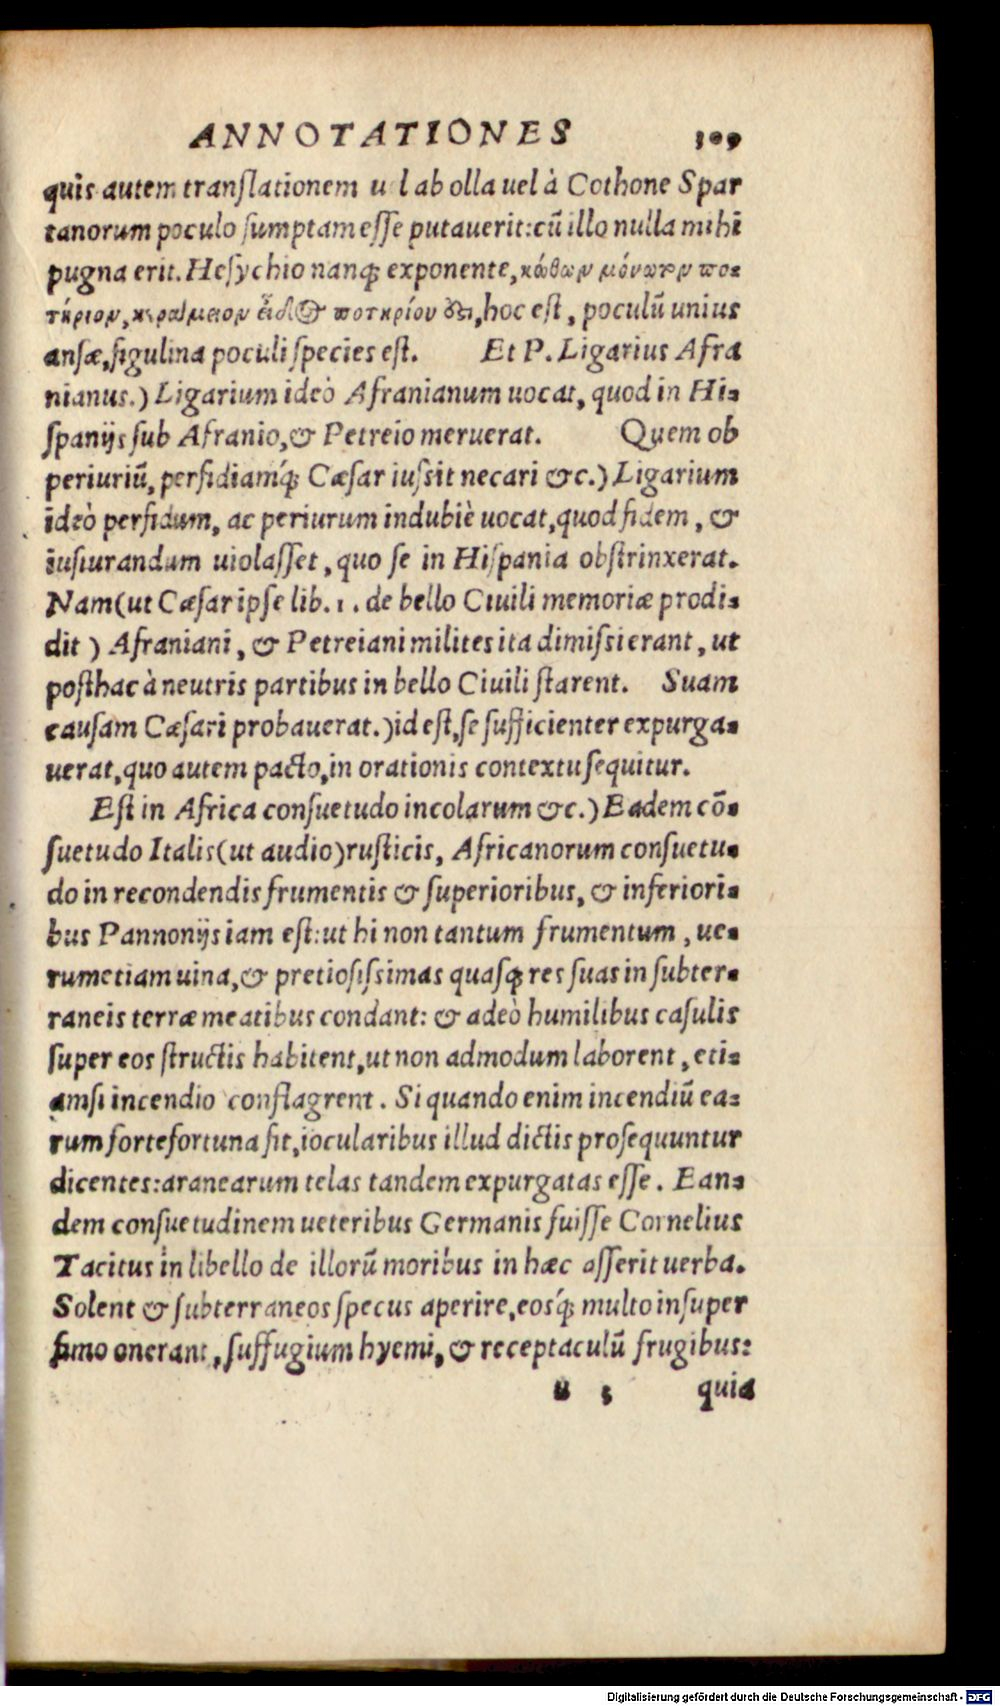 ANNOTATIONES 309
quis autem translationem uel ab olla uel à Cothone Spar
tanorum poculo sumptam esse putauerit:cū illo nulla mihi
pugna erit. Hesychio nanq; exponente, κώθων μόνωτον πο-
τήριον, κεράμειον εἶδος ποτηρίου ὅ ἐστι, hoc est, poculū unius
ansæ, figulina poculi species est. Et P. Ligarius Afra
nianus.) Ligarium ideò Afranianum uocat, quod in Hi-
spanijs sub Afranio, & Petreio meruerat. Quem ob
periuriū, perfidiamq́; Cæsar iussit necari &c.) Ligarium
ideò perfidum, ac periurum indubiè uocat, quod fidem, &
iusiurandum uiolasset, quo se in Hispania obstrinxerat.
Nam (ut Cæsar ipse lib. 1. de bello Ciuili memoriæ prodi-
dit ) Afraniani, & Petreiani milites ita dimissi erant, ut
posthac à neutris partibus in bello Ciuili starent. Suam
causam Cæsari probauerat.) id est, se sufficienter expurga-
uerat, quo autem pacto, in orationis contextu sequitur.
Est in Africa consuetudo incolarum &c.) Eadem cō-
suetudo Italis (ut audio) rusticis, Africanorum consuetu-
do in recondendis frumentis & superioribus, & inferiori-
bus Pannonijs iam est: ut hi non tantum frumentum, ue-
rumetiam uina, & pretiosissimas quasq; res suas in subter-
raneis terræ meatibus condant: & adeò humilibus casulis
super eos structis habitent, ut non admodum laborent, eti-
amsi incendio conflagrent. Si quando enim incendiū ea-
rum fortefortuna fit, iocularibus illud dictis prosequuntur
dicentes: aranearum telas tandem expurgatas esse. Ean-
dem consuetudinem ueteribus Germanis fuisse Cornelius
Tacitus in libello de illorū moribus in hæc asserit uerba.
Solent & subterraneos specus aperire, eosq́; multo insuper
fimo onerant, suffugium hyemi, & receptaculū frugibus:
u 3 quia
Digitalisierung gefördert durch die Deutsche Forschungsgemeinschaft - DFG